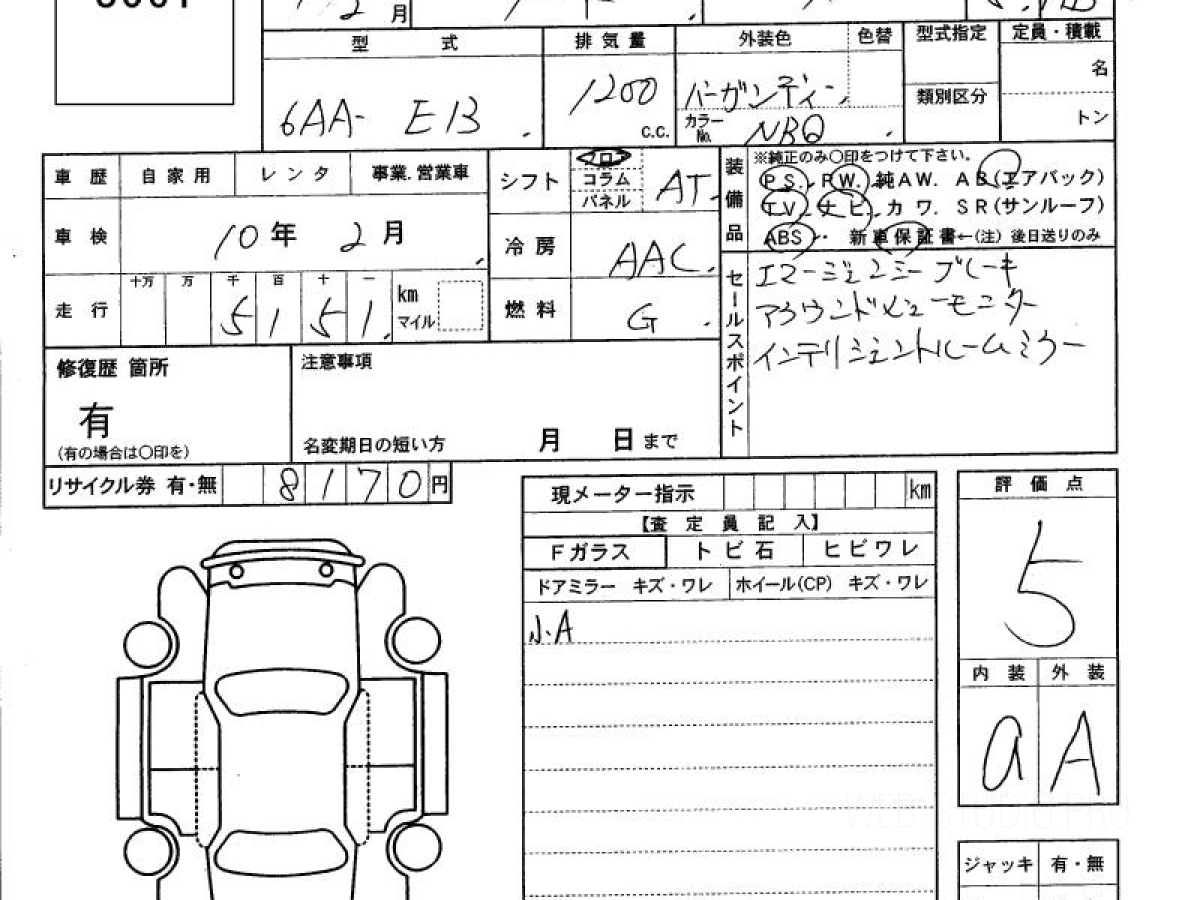 2月
型 式 排 気 量 外装色 色替 型式指定 定員・積載
名
6AA- E13 1200 c.c. バーガンディー 類別区分
カラーNo. NBQ トン
車 歴 自 家 用 レ ン タ 事業.営業車 シフト フロア コラム パネル AT
装備品 ※純正のみ〇印をつけて下さい。
PS. PW. 純AW. AB(エアバック)
TV. ナビ. カワ. SR(サンルーフ)
ABS 新車保証書←(注) 後日送りのみ
車 検 10年 2月 冷 房 AAC
走 行 十万 万 千 百 十 一 km マイル
5 1 5 1
燃 料 G
セールスポイント
エマージェンシーブレーキ
アラウンドビューモニター
インテリジェントルームミラー
修復歴 箇所 注意事項
有
(有の場合は〇印を) 名変期日の短い方 月 日 まで
リサイクル券 有・無 8170円
現メーター指示 km
【査 定 員 記 入】
Fガラス ト ビ 石 ヒ ビ ワ レ
ドアミラー キズ・ワレ ホイール(CP) キズ・ワレ
小A
評 価 点
5
内 装 外 装
a A
ジャッキ 有・無
WEB STUDIO.PRO